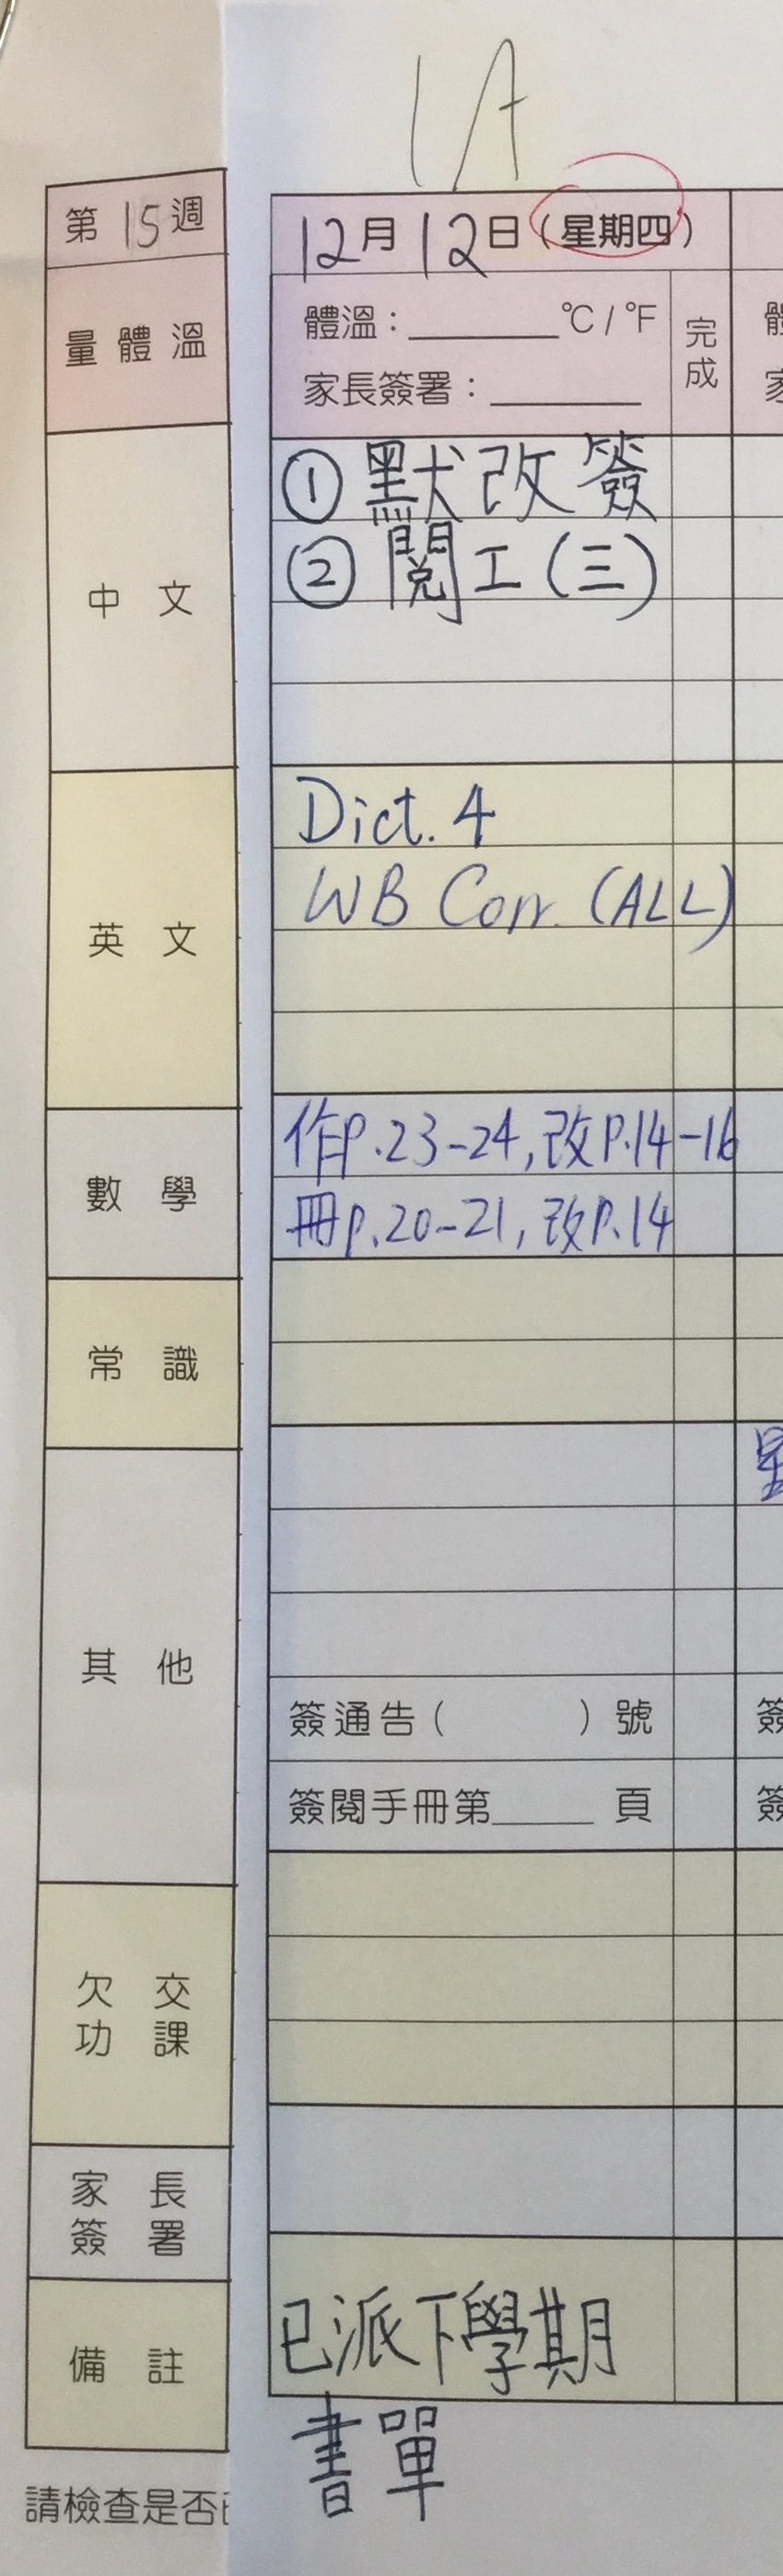 1A
第15週
12月12日(星期四)
量體溫
體溫：______°C / °F
完成
家長簽署：______
中文
① 默改簽
② 閱工(三)
英文
Dict. 4
WB Corr. (ALL)
數學
作p.23-24, 改p.14-16
冊p.20-21, 改p.14
常識
其他
簽通告( )號
簽閱手冊第______頁
欠交
功課
家長
簽署
備註
已派下學期
書單
請檢查是否